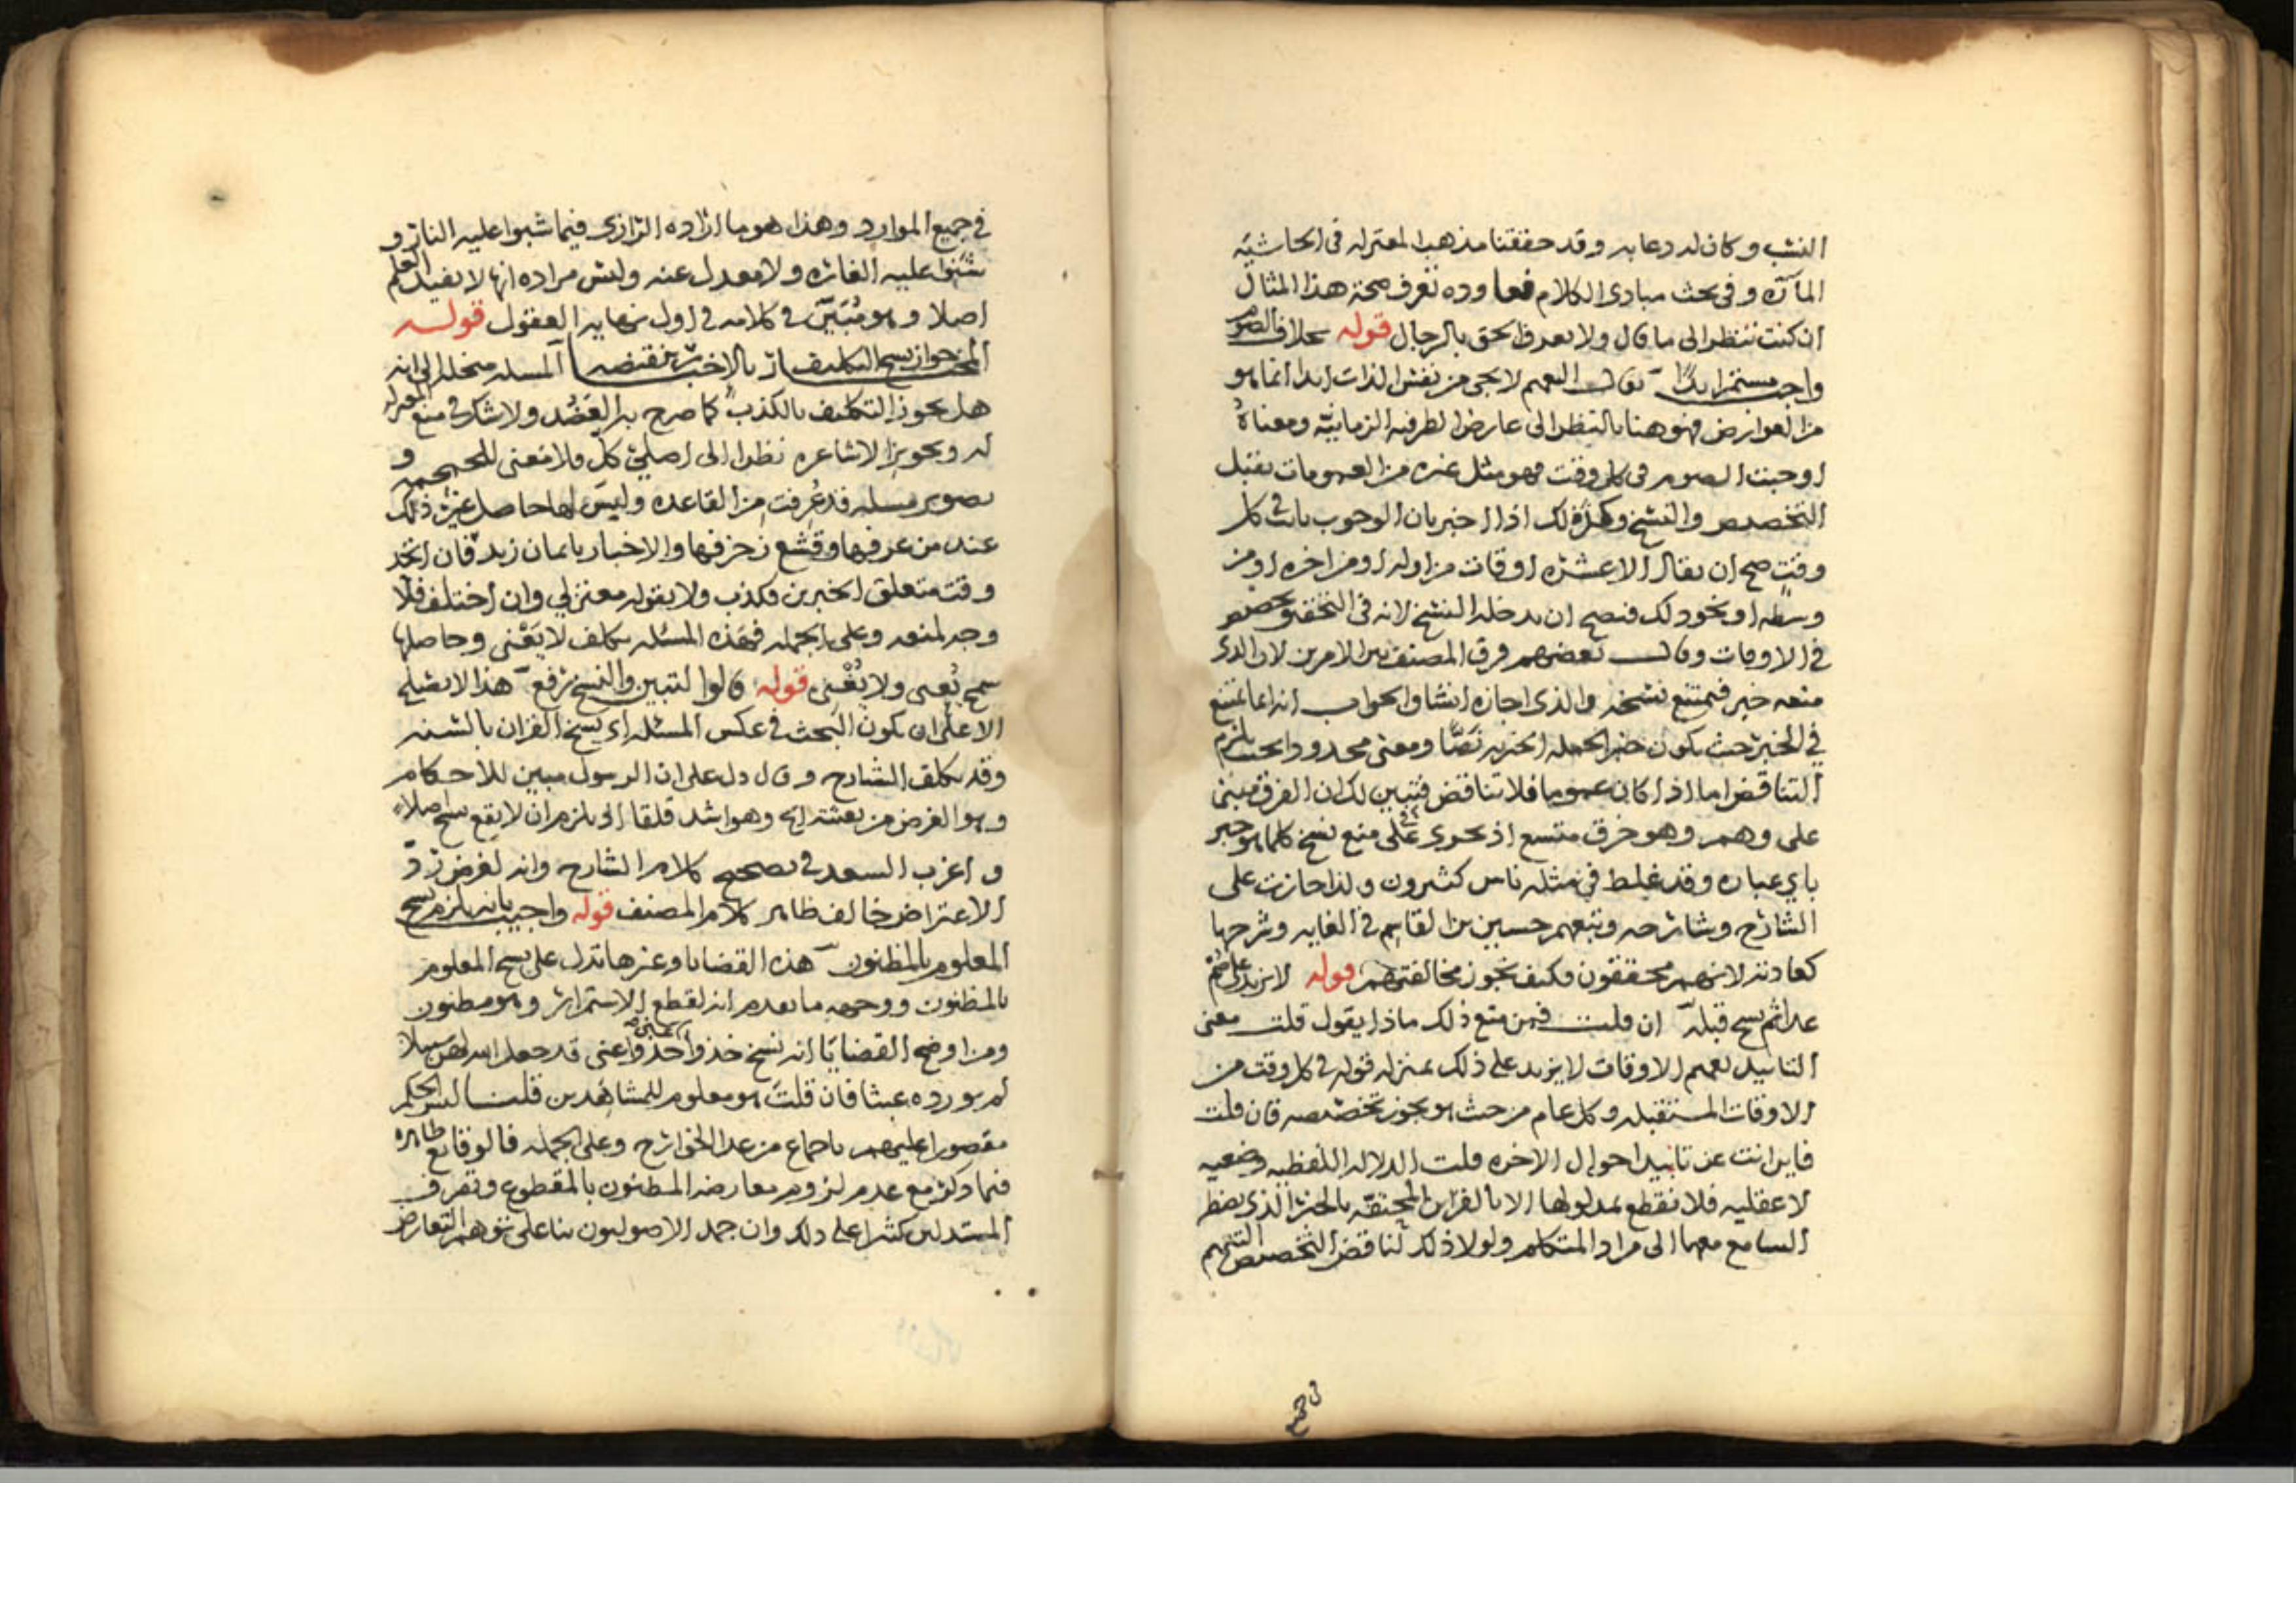 النسب وكان له دعابه وقد حققنا مذهب المعتزله فى الحاشيه
المآرّه وفى بحث مبادى الكلام فعاوده تعرف صحة هذا المثال
ان كنت تنظر الى ما قال ولا تعرف الحق بالرجال قوله بخلاف الصوم
واجب مستمر ابدًا يقال التعميم لا يجى من نفس الذات ابدا انما هو
من العوارض فهو هنا بالنظر الى عارض الطرفيه الزمانيّه ومعناهُ
اوجبت الصوم فى كل وقت فهو مثل غيره من العمومات يقبل
التخصيص والنسخ وكذلك اذا اخبر بان الوجوب ثابت فى كل
وقتٍ صح ان يقال الا عشره اوقات من اوله او من اخره او من
وسطه او نحو ذلك فيصح ان يدخله النسخ لانه فى التحقيق تخصيص
فى الاوقات وقال بعضهم فرق المصنف بين الامرين لان الذى
منعه خبر فيمتنع نسخه والذى اجازه انشا والجواب انه انما يمتنع
فى الخبر حيث يكون خبر الجمله الخبريه نَصًّا ومعنى محدودا بحيث يلزم
التناقض اما اذا كان عموما فلا تناقض فتبين لك ان الفرق مبنى
على وهم وهو خرق متسع اذ يحرى على منع نسخ كلما هو خبر
باي عباره وقد غلط فى مثله ناس كثيرون ولذا جازت على
الشارح وشارحه وتبعهم حسين بن القاسم فى الغايه وشرحها
كعادته لانهم محققون فكيف تجوز مخالفتهم قوله لا يزيد على صم
غدا ثم نسخ قبله ان قلت فمن منع ذلك ماذا يقول قلت معنى
التابيد تعميم الاوقات لا يزيد على ذلك بمنزله قوله فى كل وقت من
الاوقات المستقبله وكل عام من حيث هو يجوز تخصيصه فان قلت
فاين انت عن تابيد احوال الاخره قلت الدلاله اللفظيه وضعيه
لا عقليه فلا نقطع بمدلولها الا بالقراين المحتفّه بالخبر الذى يضطر
السامع معها الى مراد المتكلم ولولا ذلك لناقض التخصيص التعميم
فى جميع
فى جميع الموارد وهذا هو ما اراده الرازى فيما شبوا عليه النار و
شنوا عليه الغاره ولا معدل عنه وليس مراده انها لا تفيد العلم
اصلا وهو مُبَيَّن فى كلامه فى اول نهايه العقول قولـه
المختار جواز نسخ التكليف بالاخبار بنقيضه المسله منحله الى انه
هل يجوز التكليف بالكذب كما صرح به العَضُد ولا شك فى منع المعتزله
له وتجويز الاشاعره نظرا الى اصلَيْ كل فلا معنى للمحجمه و
تصوير مسله قد عُرفت من القاعده وليسَ لها حاصل غيرَ ذلك
عند من عرفها وقشع زخرفها والاخبار بايمان زيد فان اتحد
وقت متعلق الخبرين فكذب ولا يقوله معتزلي وان اختلف فلا
وجه لمنعه وعلى الجمله فهذه المسئله تكلف لا يَعْني وحاصلها
يُعنى ولا يُغْنى قوله قالوا لتبين والنسخ رفع هذا لا يصلح
الا على ان يكون البحث فى عكس المسئله اى نسخ القران بالسنه
وقد تكلف الشارح وقال دل على ان الرسول مبين للاحكام
وهو الغرض من بعثته اليه وهو اشد قلقا اذ يلزم ان لا يقع نسخ اصلا
و اغرب السعد فى تصحيح كلام الشارح وانه لغرض رد
الاعتراض خالف ظاهر كلام المصنف قوله واجيب بانه يلزم نسخ
المعلوم بالمظنون هذه القضايا وغيرها تدل على نسخ المعلوم
بالمظنون ووجهه ما تقدم انه لقطع الاستمرار وهو مظنون
ومن اوضح القضايا انه نسخ خذوا خذوا عنى قد جعل الله لهن سبيلا
لم يورده عبثا فان قلتَ هو معلوم للمشاهدين قلت ليس الحكم
مقصورا عليهم باجماع من عدا الخوارج وعلى الجمله فالوقايع ظاهره
فيما ذكر مع عدم لزوم معارضه المظنون بالمقطوع وتعرف
المستدلين كثيرا على ذلك وان جمد الاصوليون بنا على توهم التعارض